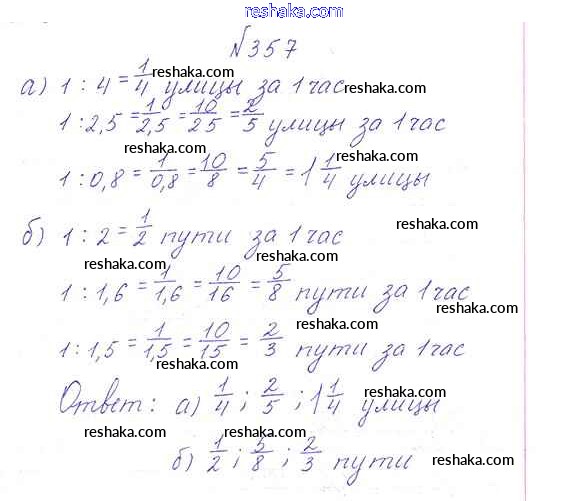 reshaka.com
№357
reshaka.com
а) 1 : 4 = 1/4 улицы за 1 час
reshaka.com
reshaka.com
1 : 2,5 = 1/2,5 = 10/25 = 2/5 улицы за 1 час
reshaka.com reshaka.com
1 : 0,8 = 1/0,8 = 10/8 = 5/4 = 1 1/4 улицы
reshaka.com
б) 1 : 2 = 1/2 пути за 1 час
reshaka.com reshaka.com
1 : 1,6 = 1/1,6 = 10/16 = 5/8 пути за 1 час
reshaka.com reshaka.com
1 : 1,5 = 1/1,5 = 10/15 = 2/3 пути за 1 час
reshaka.com
Ответ: а) 1/4 ; 2/5 ; 1 1/4 улицы
reshaka.com reshaka.com
б) 1/2 ; 5/8 ; 2/3 пути
reshaka.com reshaka.com